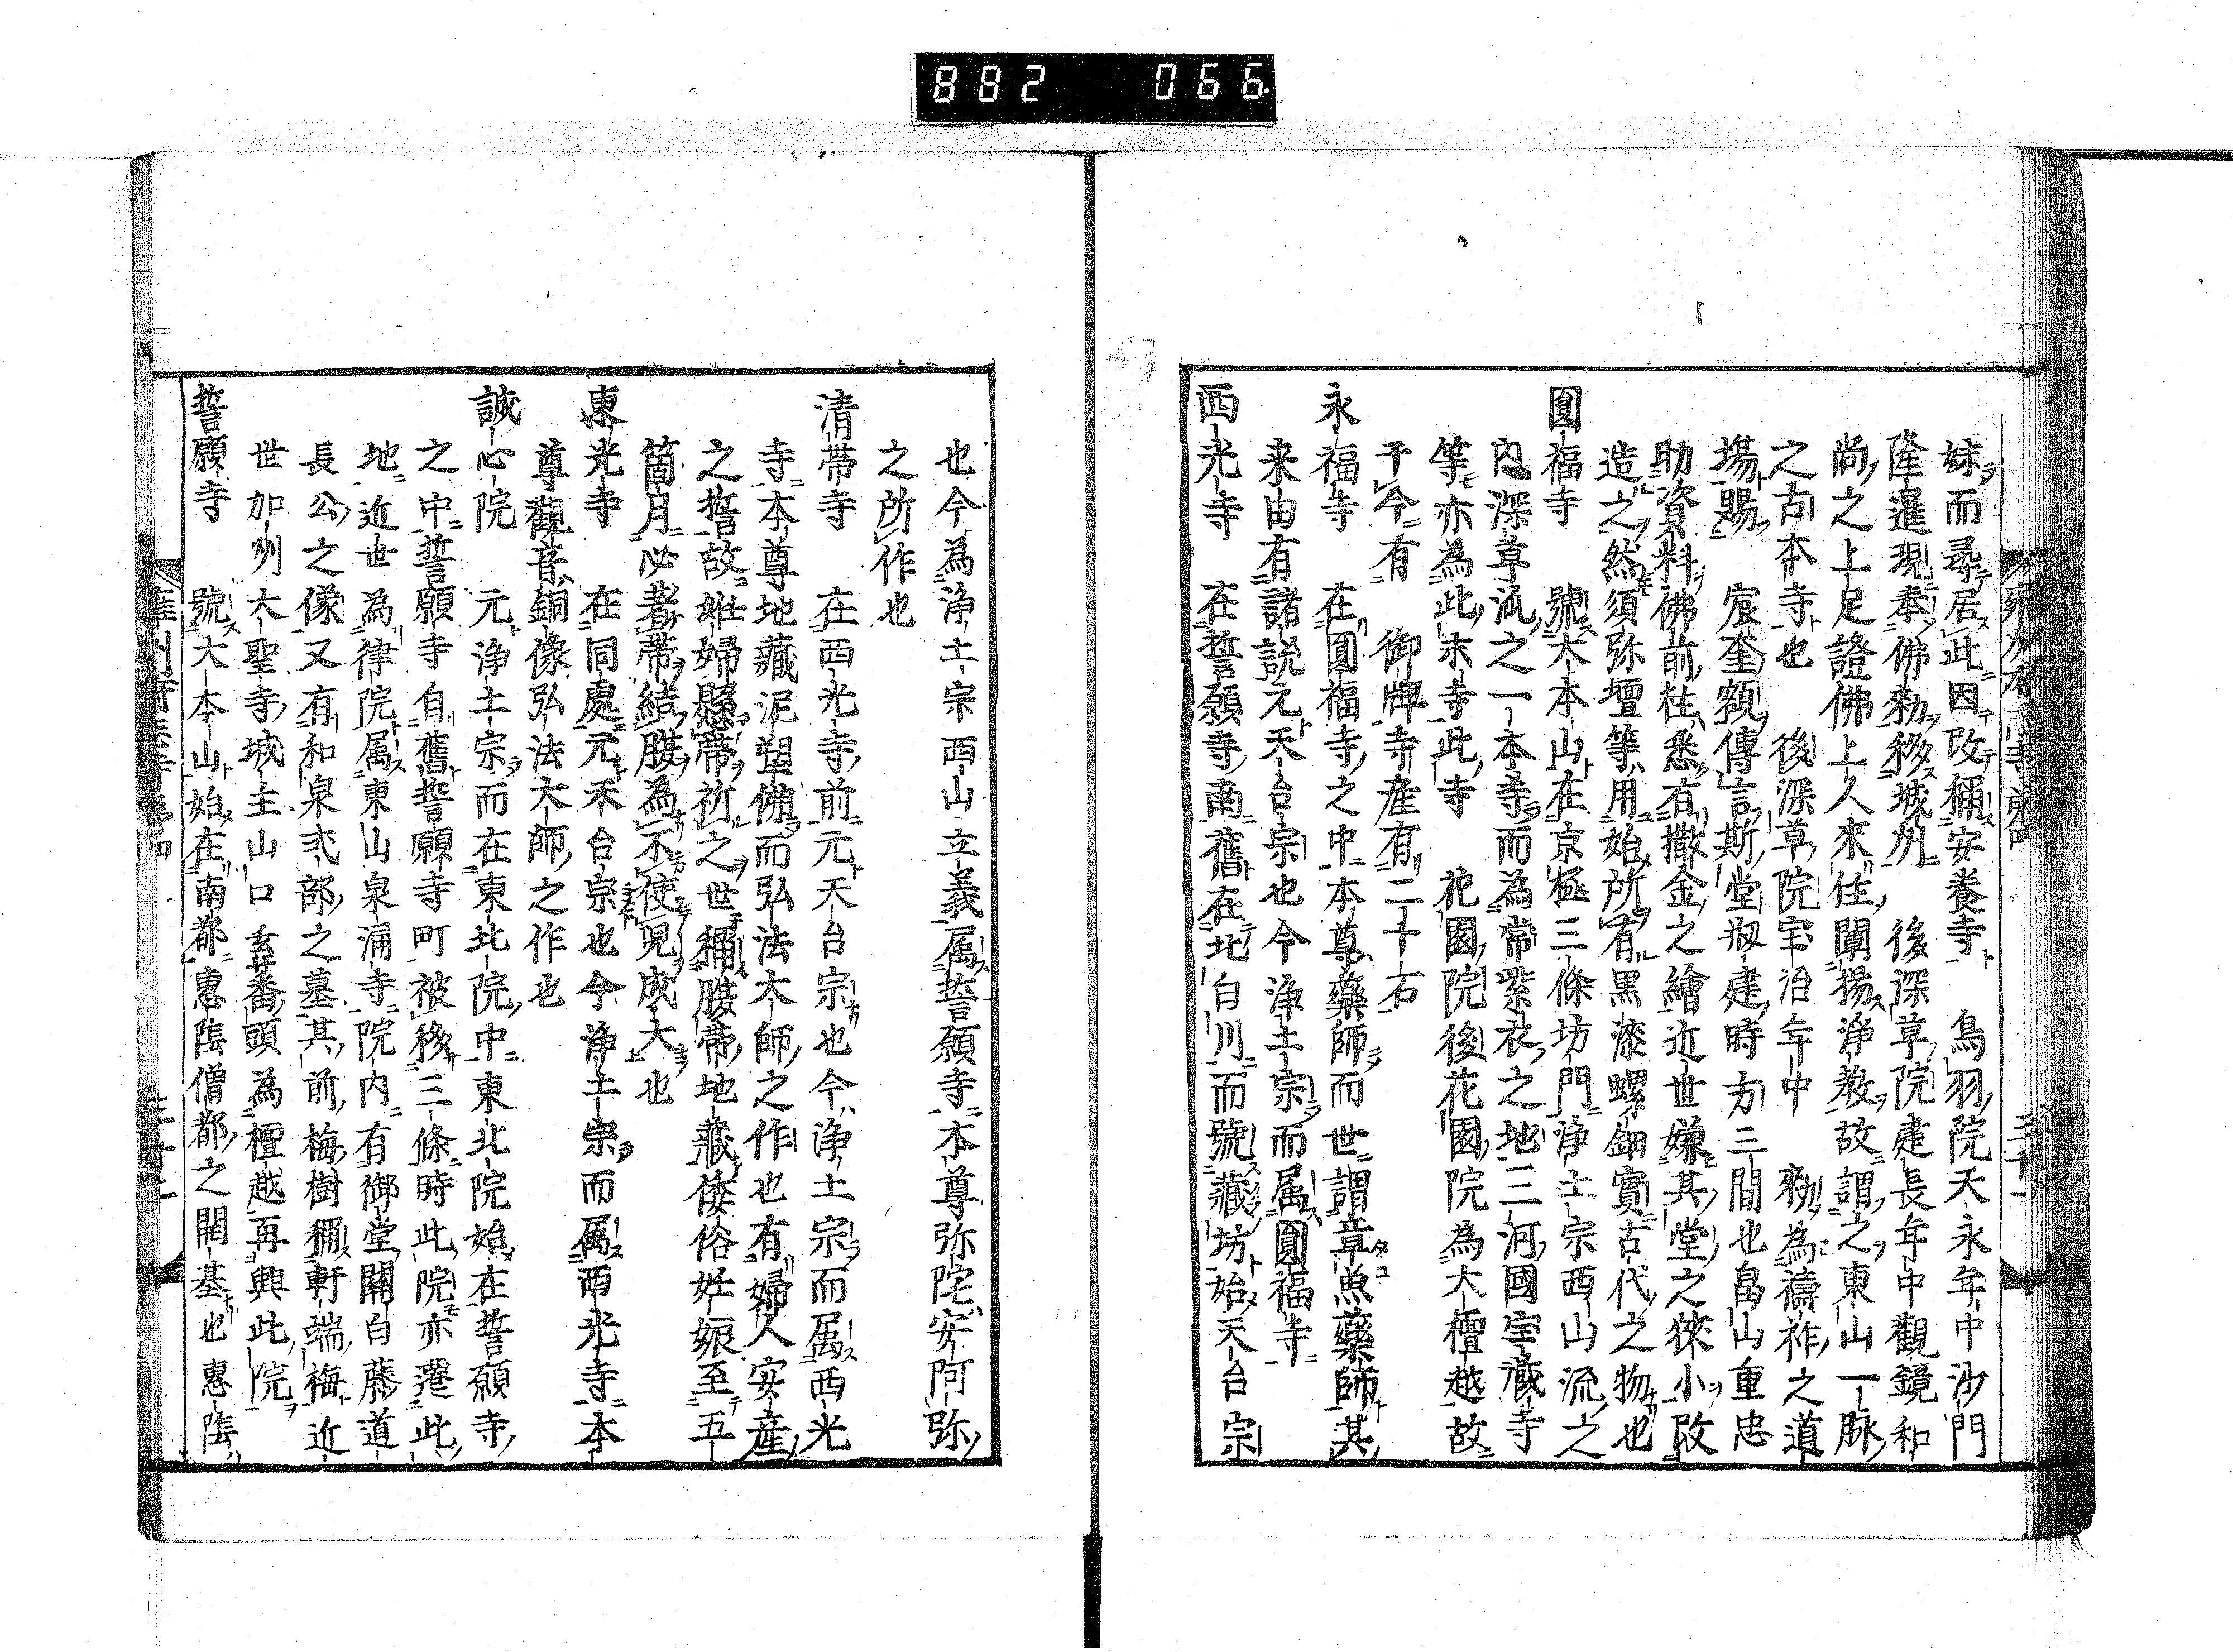 882 066
妹而尋居此因改稱安養寺 鳥羽院天永年中沙門
隆暹現奉佛勅移城州 後深草院建長年中觀鏡和
尚之上足證佛上人來住闡揚浄教故謂之東山一脉
之古本寺也 後深草院宝治年中 勅為濤祚之道
場賜 宸奎額傳言斯堂刱建時方三間也畠山重忠
助資料佛前柱悉有撒金之繪近世嫌其堂之狹小改
造之然須弥壇等用始所有黒漆螺鈿實古代之物也
圓福寺 號大本山在京極三條坊門浄土宗西山流之
内深草流之一本寺而為常紫衣之地三河國宝藏寺
等亦為此末寺此寺 花園院後花園院為大檀越故
于今有 御牌寺産有二十石
永福寺 在圓福寺之中本尊藥師而世謂章魚藥師其
来由有諸説元天台宗也今浄土宗而属圓福寺
西光寺 在誓願寺南舊在北白川而號藏坊始天台宗
也今為浄土宗西山立義属誓願寺本尊弥陀安阿弥
之所作也
清帶寺 在西光寺前元天台宗也今浄土宗而属西光
寺本尊地藏泥塑佛而弘法大師之作也有婦人安産
之誓故姙婦懸帶祈之世稱腹帶地藏倭俗姙娠至五
箇月必著帶結腹為不使児成大也
東光寺 在同處元天台宗也今浄土宗而属西光寺本
尊觀音銅像弘法大師之作也
誠心院 元浄土宗而在東北院中東北院始在誓願寺
之中誓願寺自舊誓願寺町被移三條時此院亦遷此
地近世為律院属東山泉涌寺院内有御堂關白藤道
長公之像又有和泉式部之墓其前梅樹稱軒端梅近
世加州大聖寺城主山口玄蕃頭為檀越再興此院
誓願寺 號大本山始在南都惠隱僧都之開基也惠隱